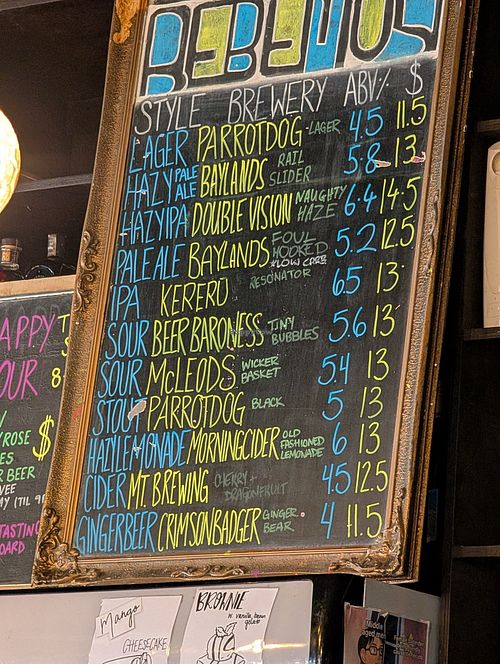 STYLE BREWERY ABV% $
LAGER PARROTDOG -LAGER 4.5 11.5
HAZY PALE ALE BAYLANDS RAIL SLIDER 5.8 13
HAZY IPA DOUBLE VISION NAUGHTY HAZE 6.4 14.5
PALE ALE BAYLANDS FOUL HOOKED *LOW CARB 5.2 12.5
IPA KERERU RESONATOR 6.5 13
SOUR BEER BARONESS TINY BUBBLES 5.6 13
SOUR McLEODS WICKER BASKET 5.4 13
STOUT PARROTDOG BLACK 5 13
HAZY LEMONADE MORNINGCIDER OLD FASHIONED LEMONADE 6 13
CIDER MT. BREWING CHERRY + DRAGONFRUIT 4.5 12.5
GINGERBEER CRIMSONBADGER GINGER BEAR 4 11.5
APPY
OUR 8
ROSE $
ES
R BEER
VEE
TASTING
OARD
Mango
CHEESECAKE
BROWNIE
w. vanilla bean
gelato
Middle
aged me